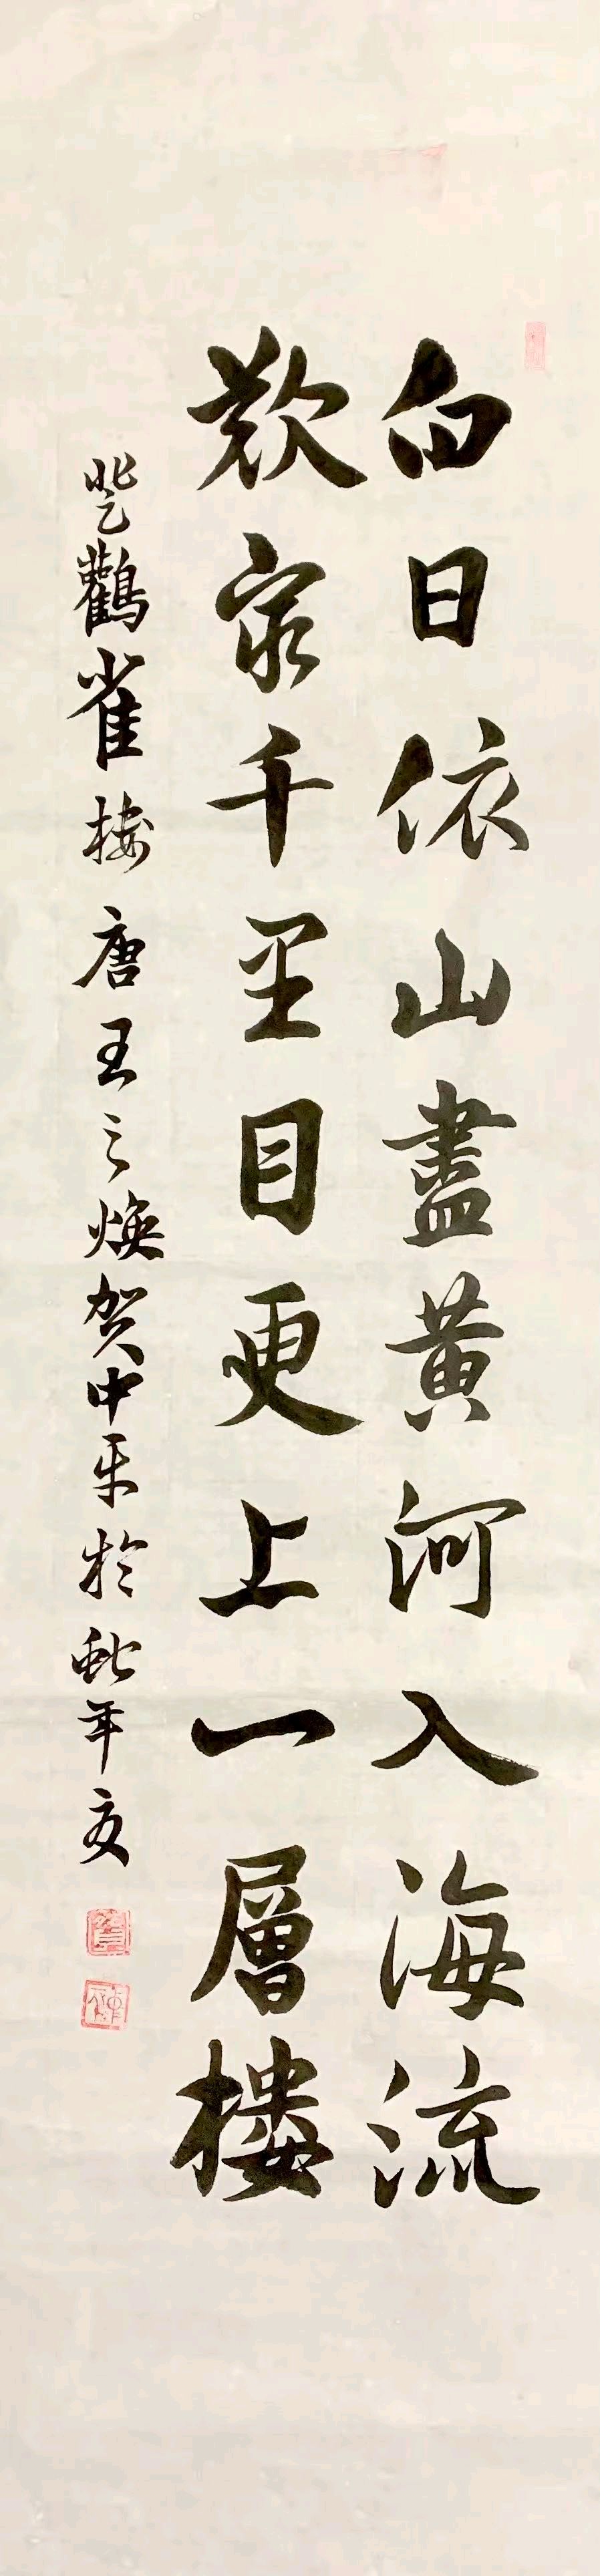 白日依山盡黃河入海流
欲窮千里目更上一層樓
登鸛雀樓 唐 王之煥 賀中平於 年